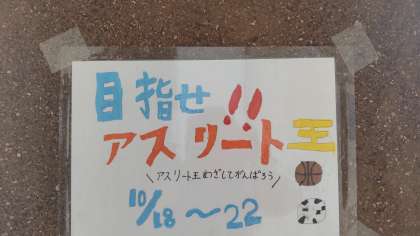 目指せ!!
アスリート王
\アスリート王めざしてがんばろう/
10/18～22